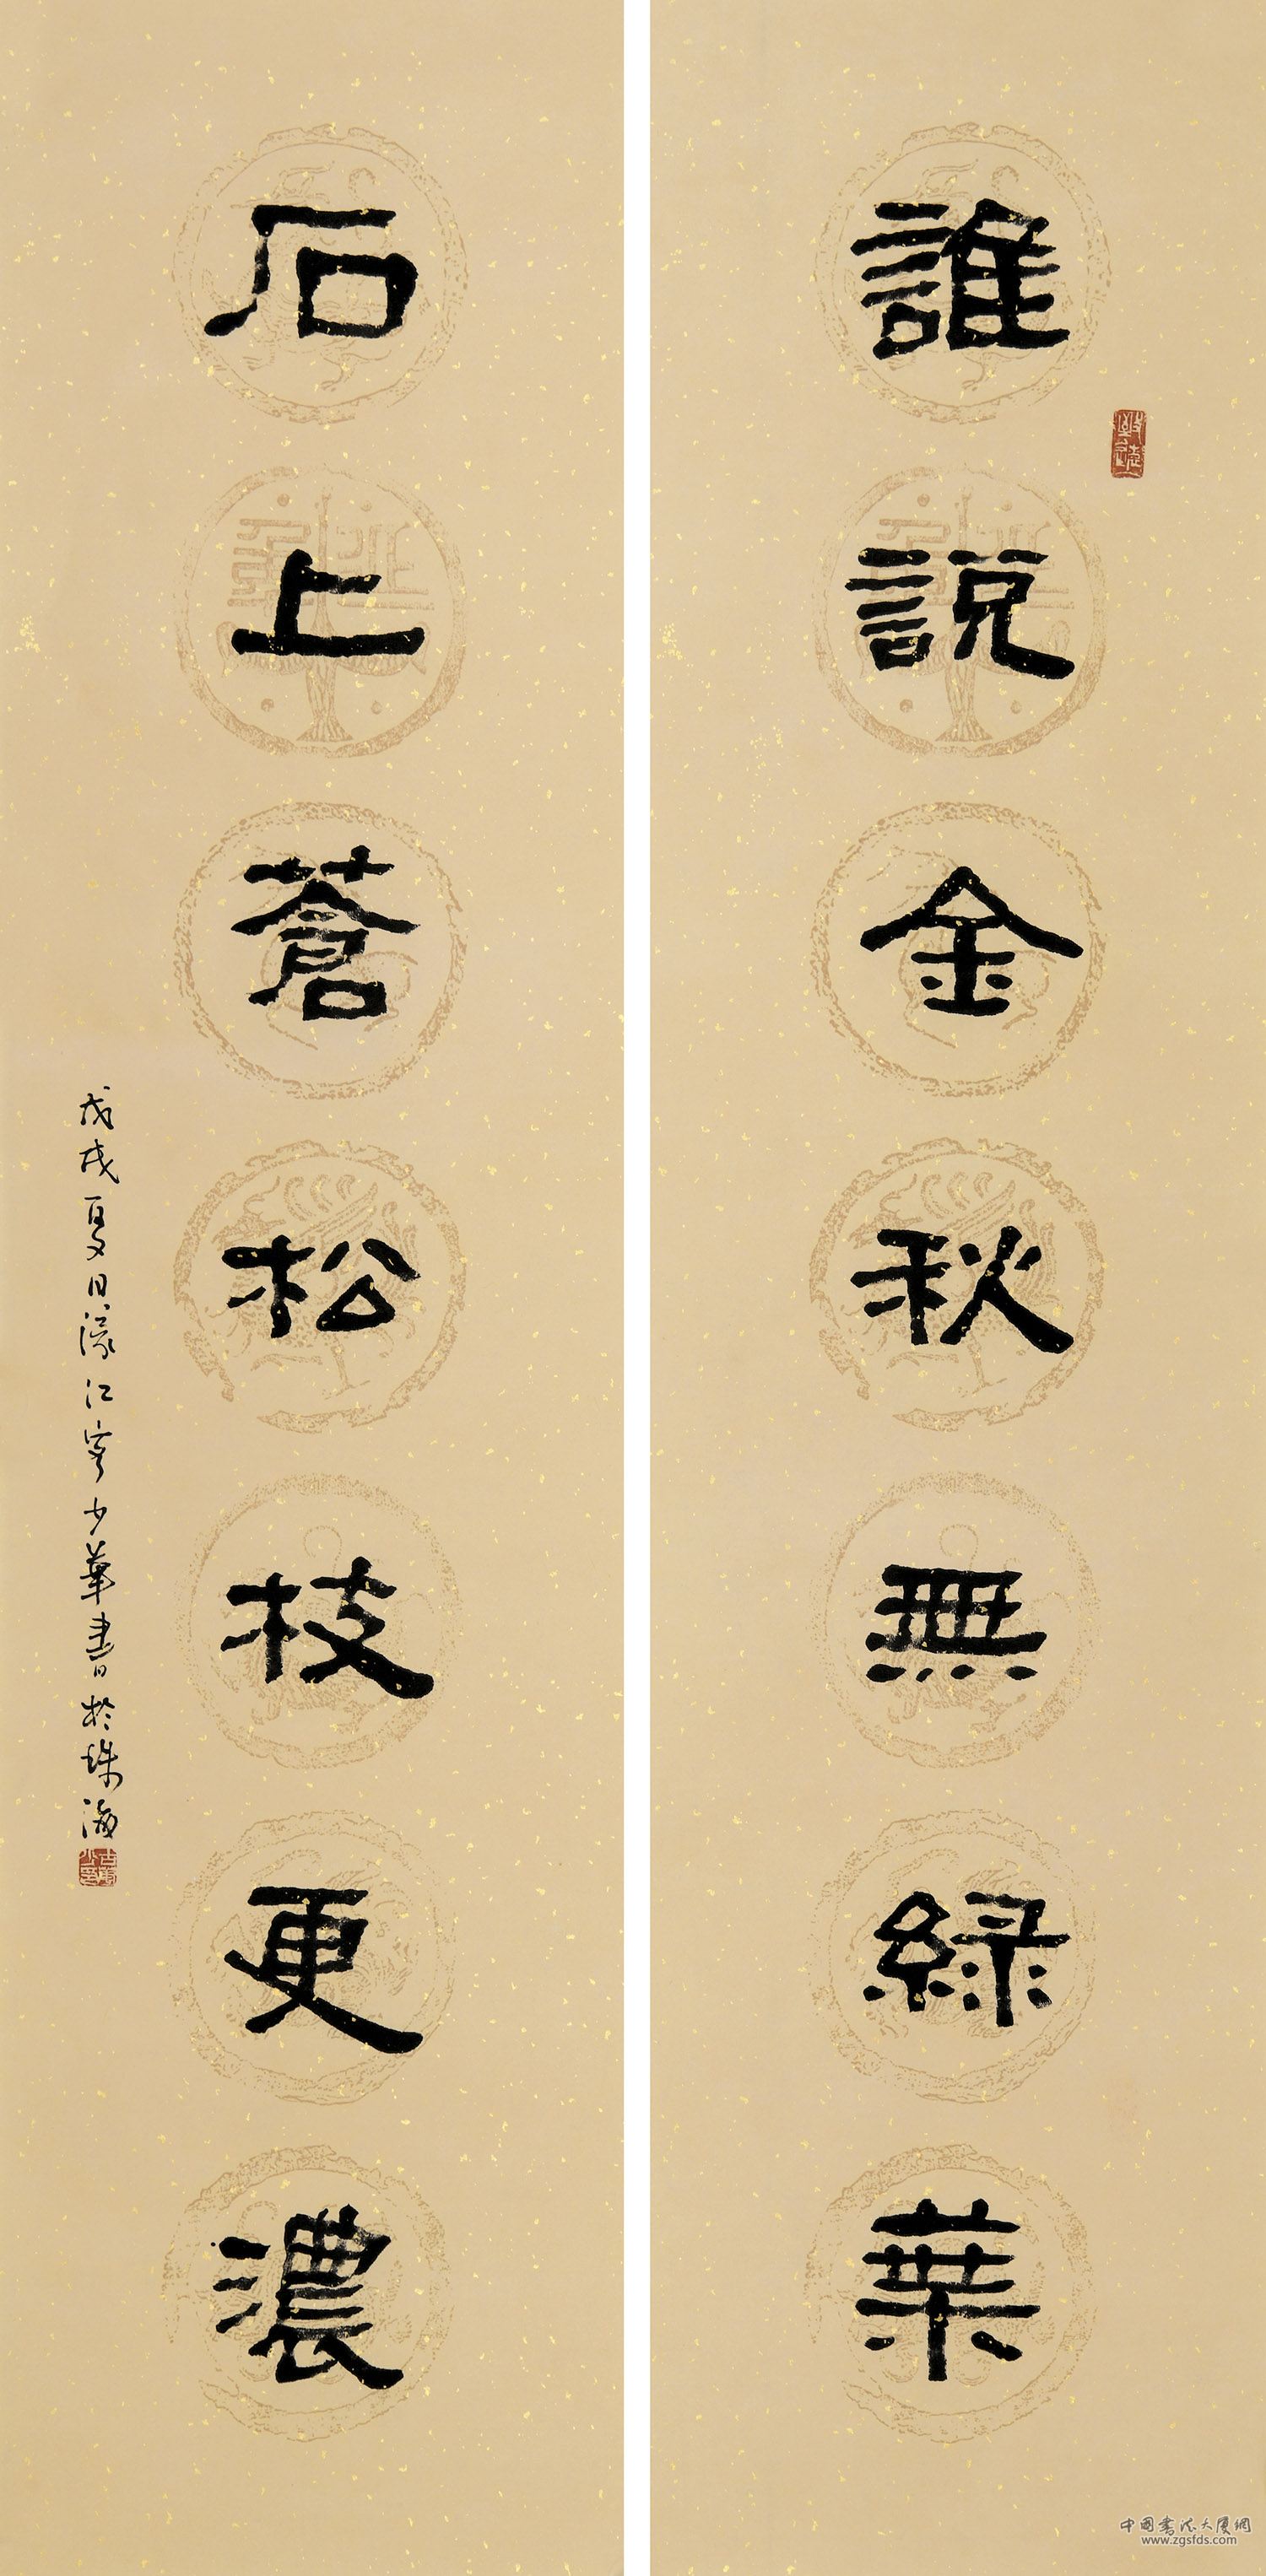 誰說金秋無綠葉
石上蒼松枝更濃
戊戌夏日濛江客少華書於珠海
中國書法大廈網
www.zgsfds.com